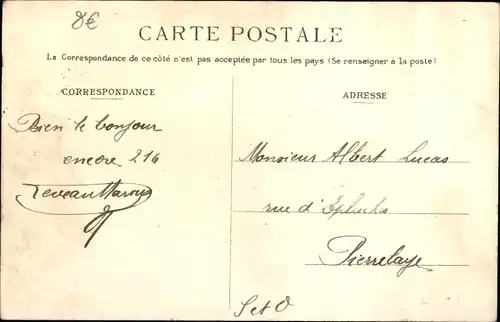 8€
CARTE POSTALE
La Correspondance de ce côté n'est pas acceptée par tous les pays (Se renseigner à la poste)
CORRESPONDANCE
ADRESSE
Bien le bonjour
encore 216
Monsieur Albert Lucas
rue d'
Pierrelaye
S et O